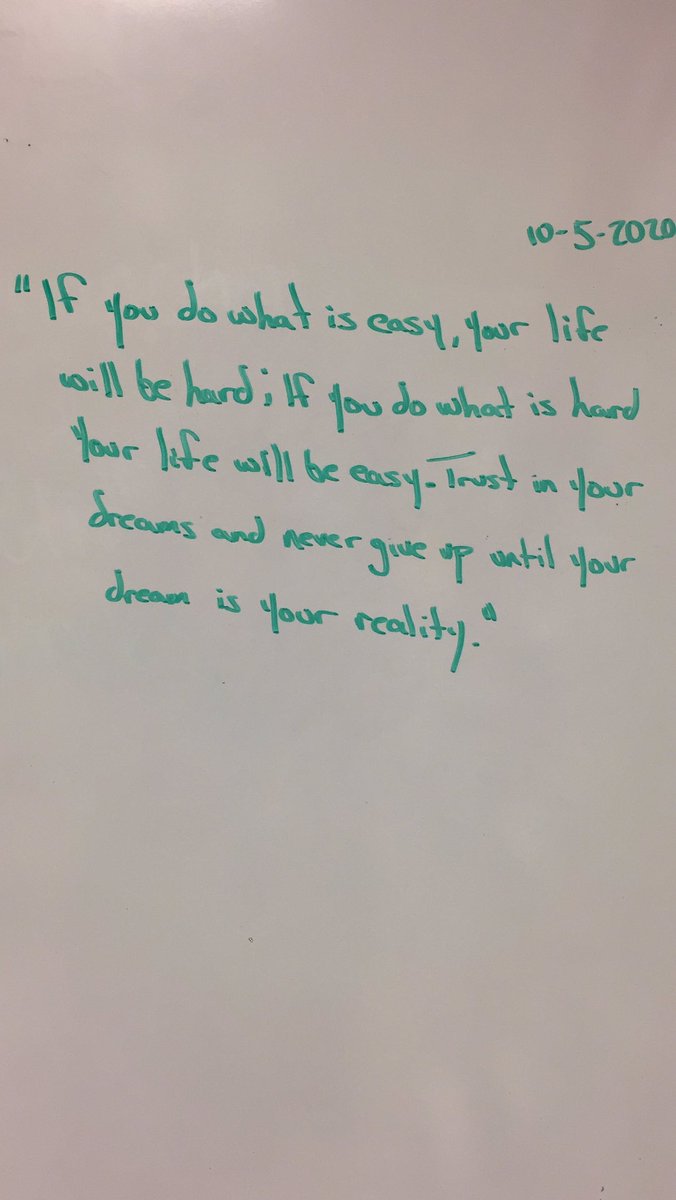 10-5-2020
"If you do what is easy, your life
will be hard; If you do what is hard
your life will be easy. Trust in your
dreams and never give up until your
dream is your reality."